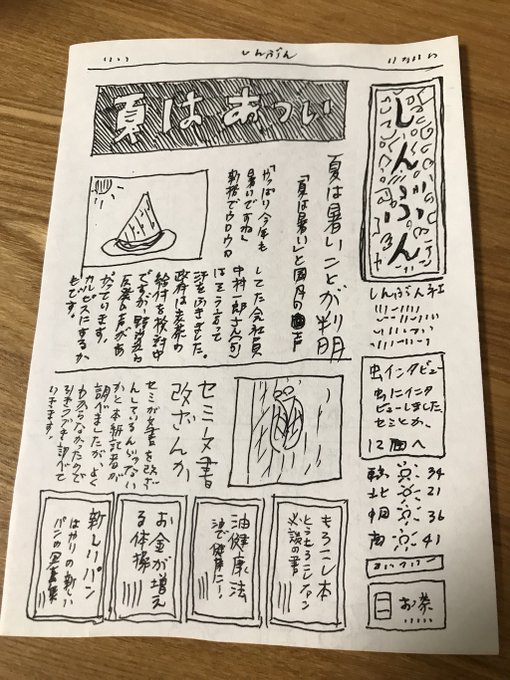 しんぶん
しんぶん
しんぶん社
夏はあつい
夏は暑いことが判明
「夏は暑い」と国民の声
「やっぱり今年も
暑いですね」
新橋でウロウロ
してた会社員
中村一郎さん(
はそう言って
汗をふきました。
政府は麦茶の
給付を検討中
ですが、野党の
反発の声があ
がっています。
カルピスにするか
もです。
虫インタビュー
虫にインタ
ビューしました。
セミとか。
12面へ
セミ文書
改ざんか
セミが文書を改ざ
んしているんじゃない
かと本紙記者が
調べましたが、よく
わからなかったので
引きつづき調べて
いきます。
東 34
北 21
中国 36
南 41
もろこし本
とうもろこしファン
必読の書
油健康法
油で健康に!
お金が増え
る体操
新しいパン
はやりの新しい
パンの写真集
お茶